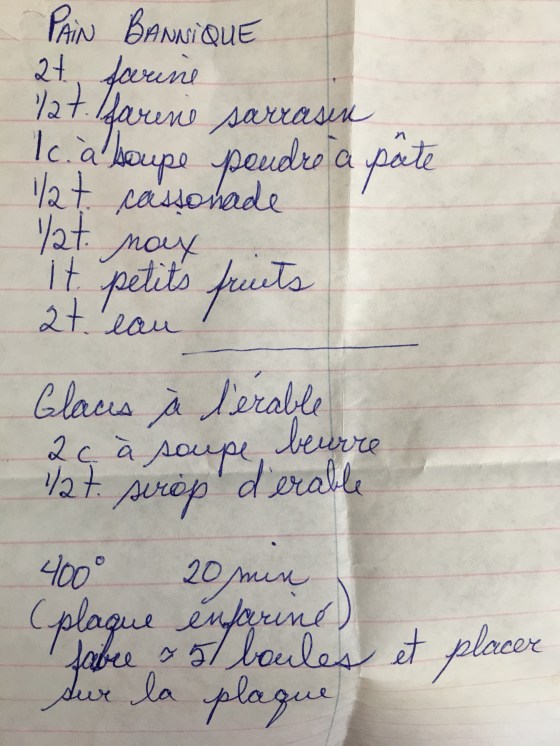 PAIN BANNIQUE
2t. farine
1/2t. farine sarrasin
1c. à soupe poudre à pâte
1/2t. cassonade
1/2t. noix
1t. petits fruits
2t. eau
Glacis à l'érable
2 c. à soupe beurre
1/2t. sirop d'érable
400° 20 min
(plaque enfariné)
faire ~ 5 boules et placer
sur la plaque